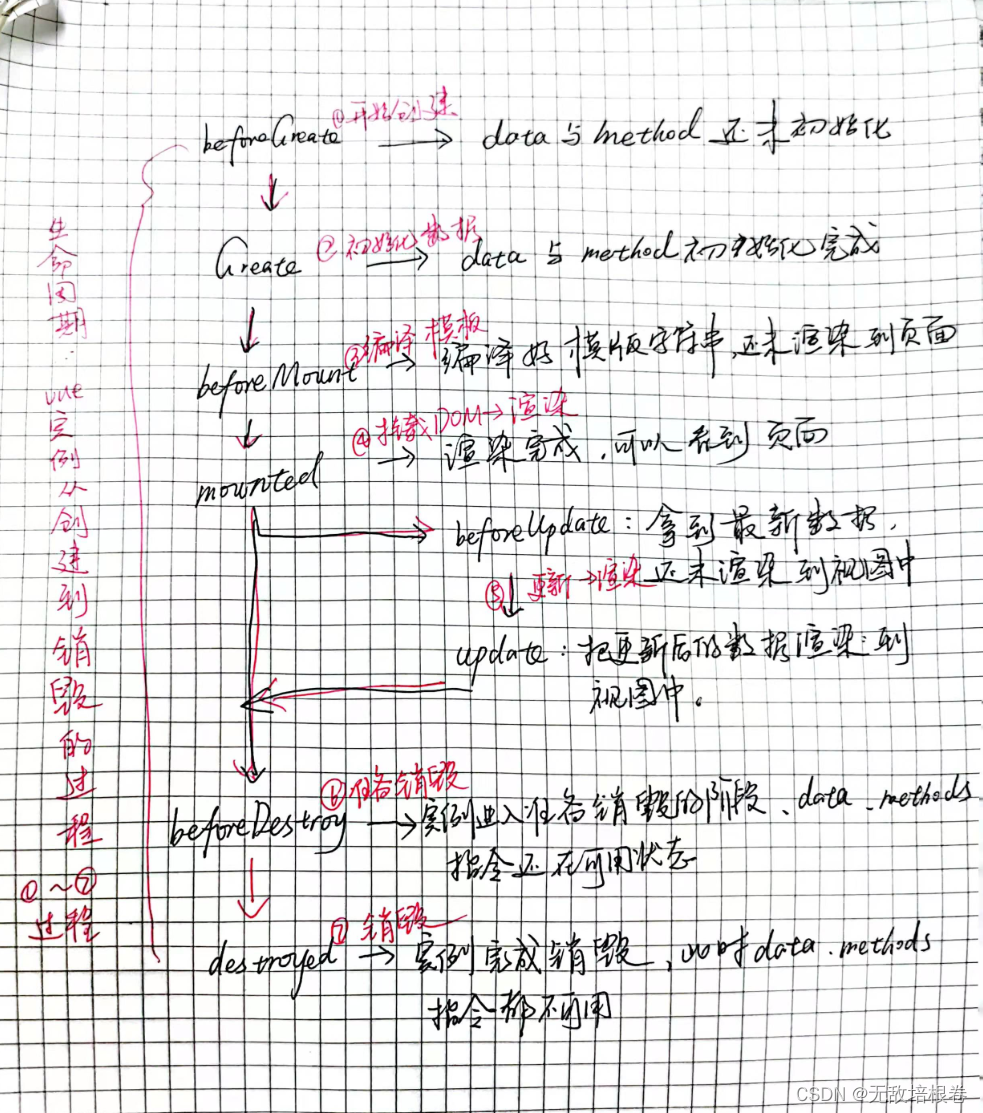 ①开始创建
beforeCreate → data与method还未初始化
②初始化数据
Create → data与method初始化完成
③编译模板
beforeMount → 编译好模版字符串,还未渲染到页面
④挂载DOM→渲染
mounted → 渲染完成,可以看到页面
beforeUpdate:拿到最新数据,
⑤更新→渲染 还未渲染到视图中
update:把更新后的数据渲染到
视图中。
⑥准备销毁
beforeDestroy → 实例进入准备销毁的阶段、data.methods
指令还在可用状态
⑦销毁
destroyed → 实例完成销毁,此时data.methods
指令都不可用
生命周期:vue实例从创建到销毁的过程
①~⑦
过程
CSDN @无敌培根卷